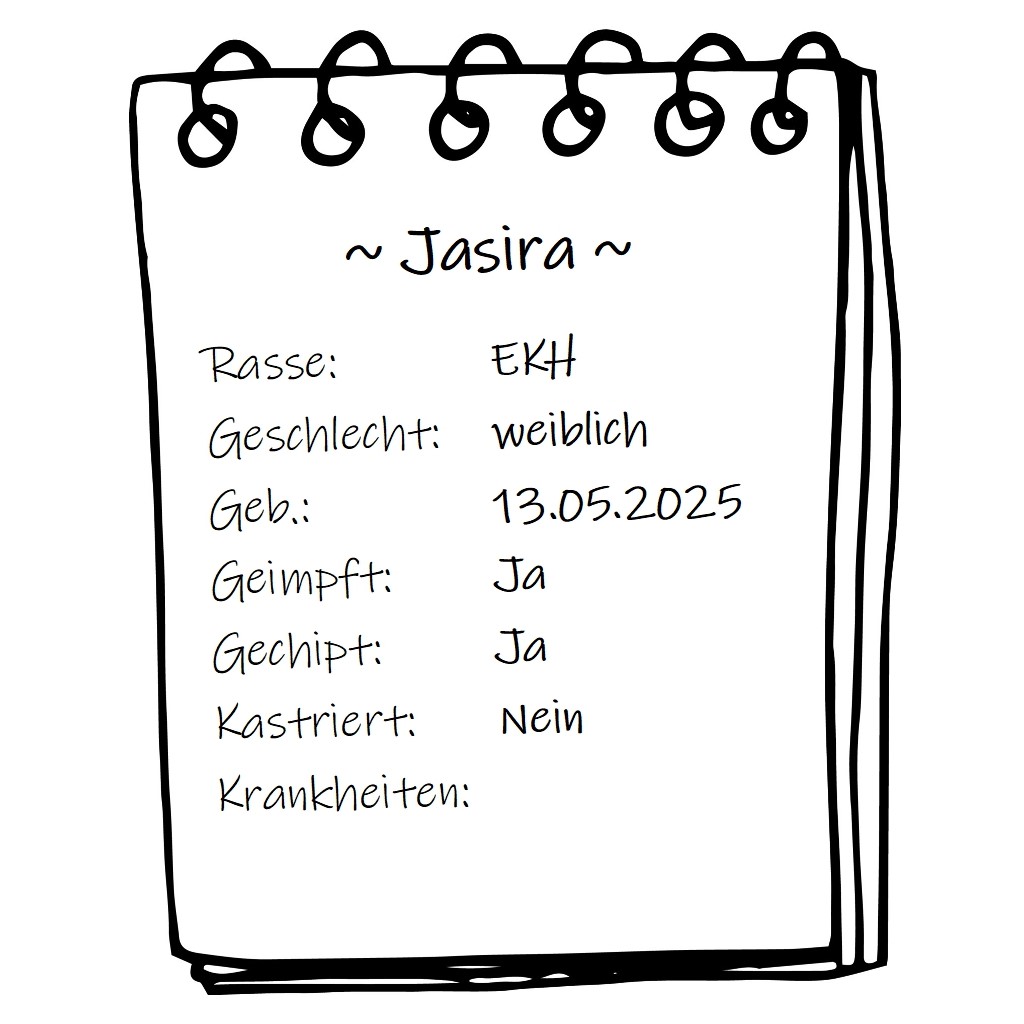 ~ Jasira ~
Rasse: EKH
Geschlecht: weiblich
Geb.: 13.05.2025
Geimpft: Ja
Gechipt: Ja
Kastriert: Nein
Krankheiten: